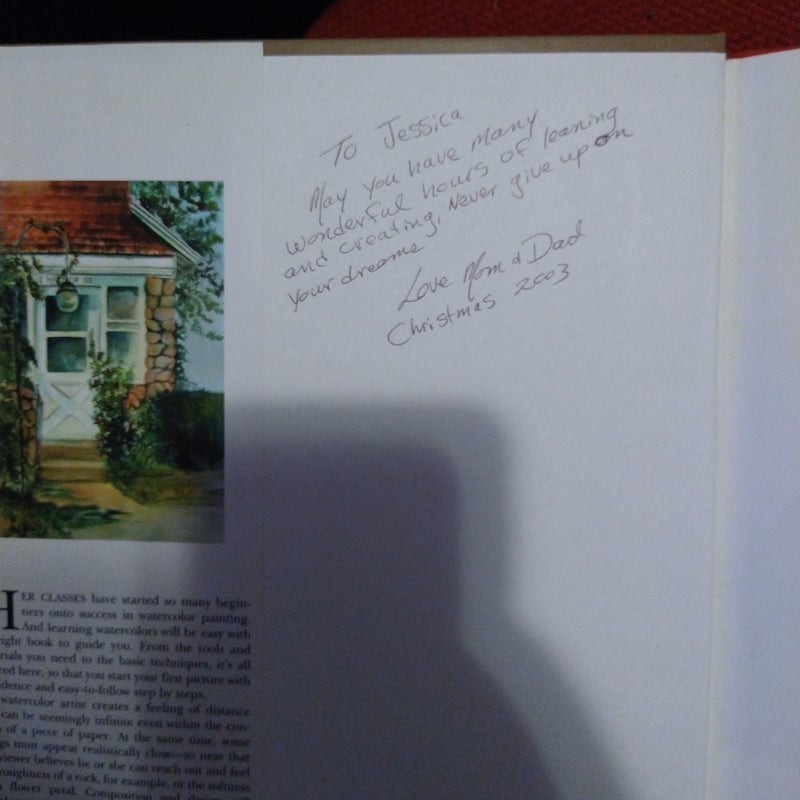 To Jessica
May you have many
wonderful hours of leaning
and creating, Never give up on
your dreams
Love Mom & Dad
Christmas 2003
HER CLASSES have started so many begin-
ners onto success in watercolor painting.
And learning watercolors will be easy with
ight book to guide you. From the tools and
rials you need to the basic techniques, it's all
red here, so that you start your first picture with
dence and easy-to-follow step by steps.
watercolor artist creates a feeling of distance
can be seemingly infinite even within the con-
s of a piece of paper. At the same time, some
gs must appear realistically close—so near that
viewer believes he or she can reach out and feel
roughness of a rock, for example, or the softness
flower petal. Composition and